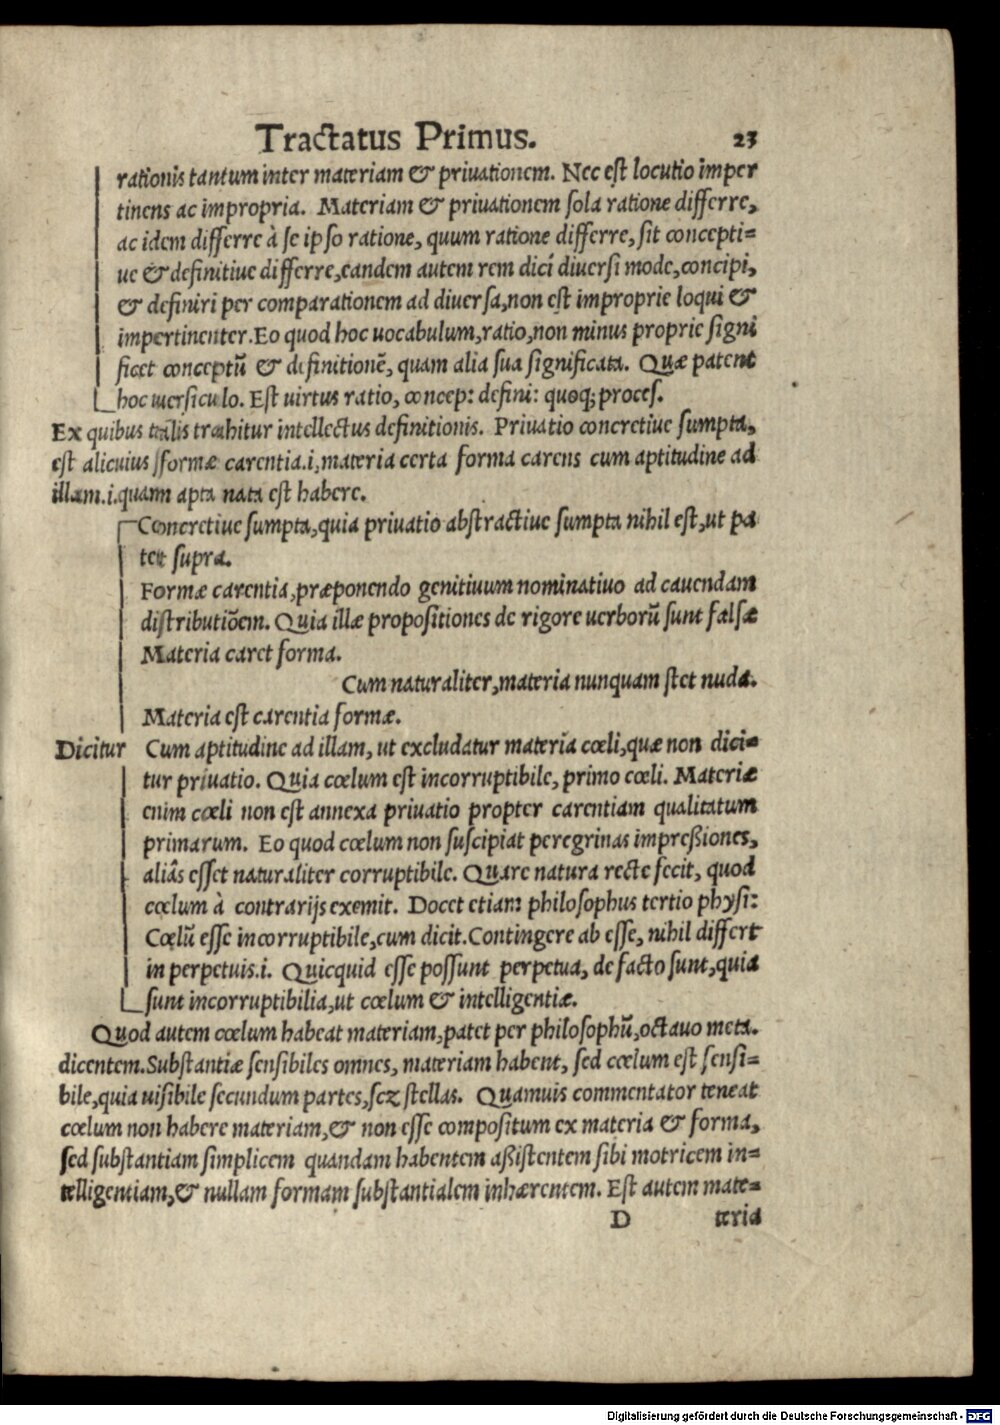 Tractatus Primus. 23
rationis tantum inter materiam & priuationem. Nec est locutio imper
tinens ac impropria. Materiam & priuationem sola ratione differre,
ac idem differre à se ipso ratione, quum ratione differre, sit concepti=
ue & definitiue differre, eandem autem rem dici diuersi mode, concipi,
& definiri per comparationem ad diuersa, non est improprie loqui &
impertinenter. Eo quod hoc uocabulum, ratio, non minus proprie signi
ficet conceptū & definitionē, quam alia sua significata. Quæ patent
hoc uersiculo. Est uirtus ratio, concep: defini: quoq; proces.
Ex quibus talis trahitur intellectus definitionis. Priuatio concretiue sumpta,
est alicuius formæ carentia .i, materia certa forma carens cum aptitudine ad
illam .i. quam apta nata est habere.
Concretiue sumpta, quia priuatio abstractiue sumpta nihil est, ut pa
tet supra.
Formæ carentia, præponendo genitiuum nominatiuo ad cauendam
distributiōem. Quia illæ propositiones de rigore uerborū sunt falsæ
Materia caret forma.
Cum naturaliter, materia nunquam stet nuda.
Materia est carentia formæ.
Dicitur Cum aptitudine ad illam, ut excludatur materia cœli, quæ non dici=
tur priuatio. Quia cœlum est incorruptibile, primo cœli. Materiæ
enim cœli non est annexa priuatio propter carentiam qualitatum
primarum. Eo quod cœlum non suscipiat peregrinas impreßiones,
aliâs esset naturaliter corruptibile. Quare natura recte fecit, quod
cœlum à contrarijs exemit. Docet etiam philosophus tertio physi:
Cœlū esse incorruptibile, cum dicit. Contingere ab esse, nihil differt
in perpetuis .i. Quicquid esse possunt perpetua, de facto sunt, quia
sunt incorruptibilia, ut cœlum & intelligentiæ.
Quod autem cœlum habeat materiam, patet per philosophū, octauo meta.
dicentem. Substantiæ sensibiles omnes, materiam habent, sed cœlum est sensi=
bile, quia uisibile secundum partes, scz stellas. Quamuis commentator teneat
cœlum non habere materiam, & non esse compositum ex materia & forma,
sed substantiam simplicem quandam habentem aßistentem sibi motricem in=
telligentiam, & nullam formam substantialem inhærentem. Est autem mate=
D teria
Digitalisierung gefördert durch die Deutsche Forschungsgemeinschaft - DFG